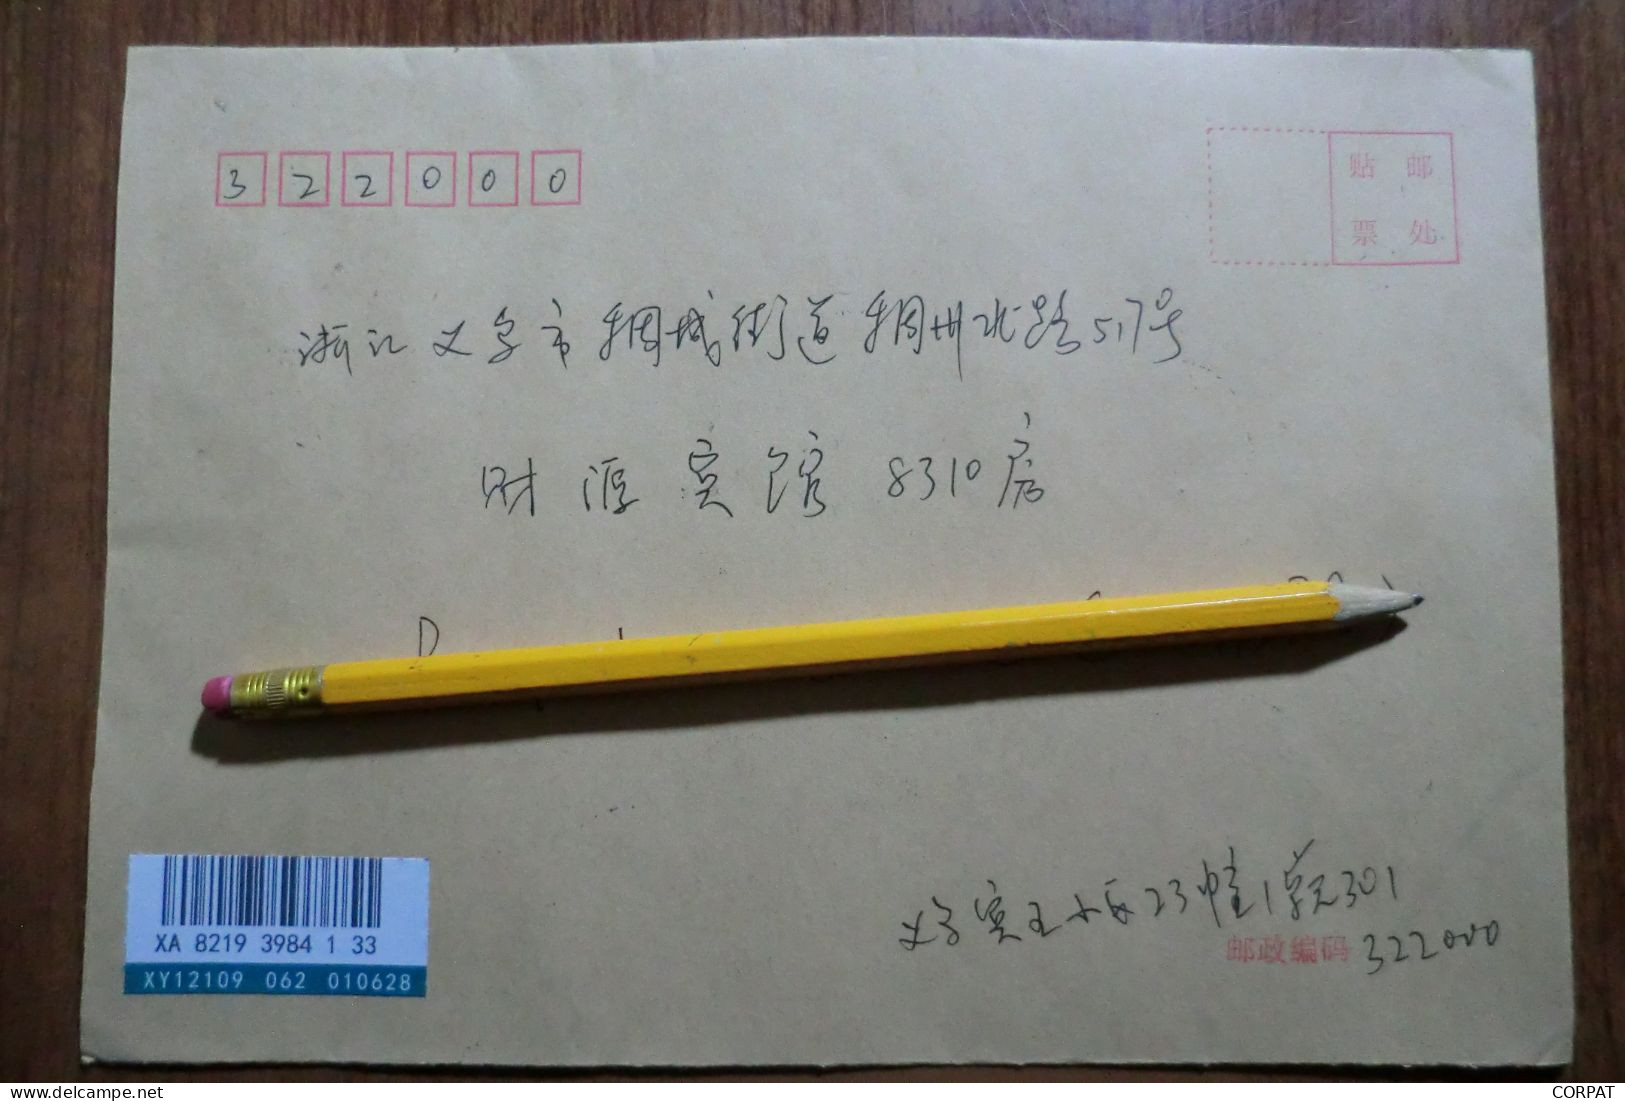 322000
贴 邮
票 处
浙江义乌市稠城街道稠州北路517号
财源宾馆 8310房
XA 8219 3984 1 33
XY12109 062 010628
义乌宾王小区23幢1单元301
邮政编码 322000
delcampe.net
CORPAT